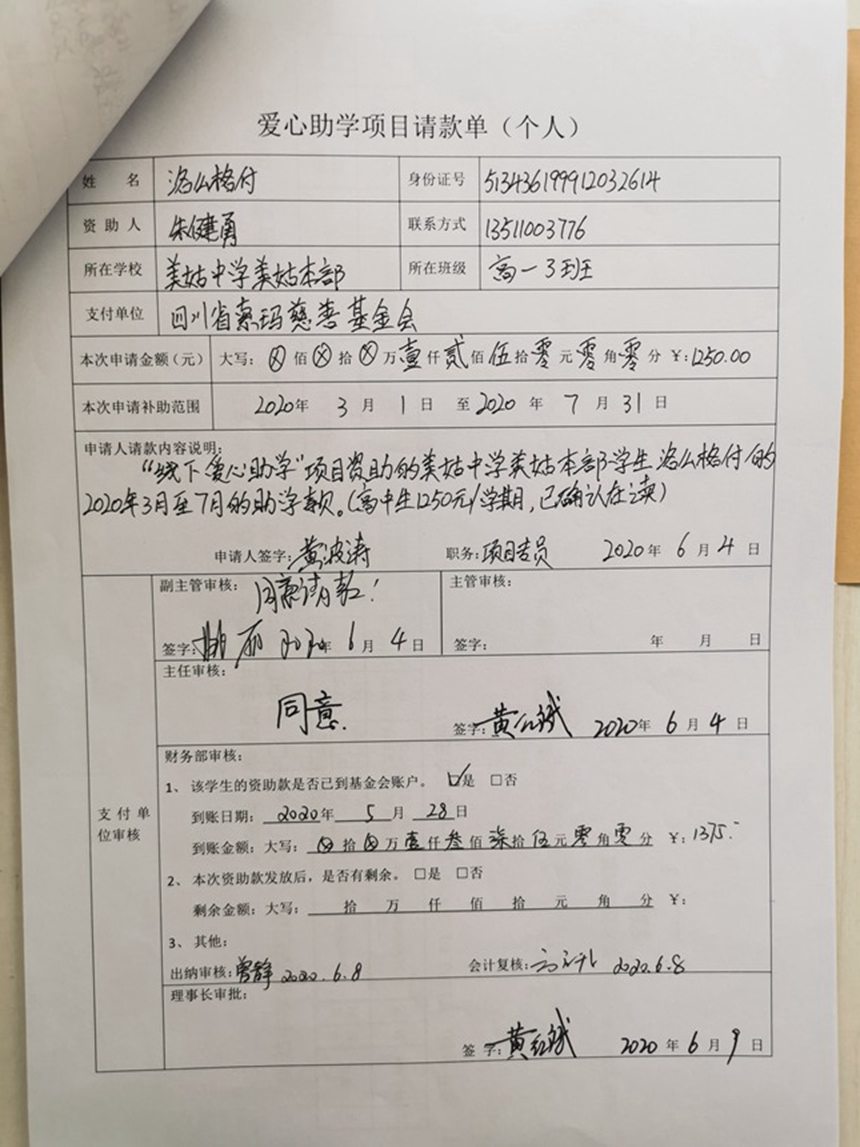 爱心助学项目请款单（个人）
姓 名 洛么格付 身份证号 513436199912032614
资助人 朱健勇 联系方式 13511003776
所在学校 美姑中学美姑本部 所在班级 高一3班
支付单位 四川省索玛慈善基金会
本次申请金额（元） 大写：ⓧ佰ⓧ拾ⓧ万壹仟贰佰伍拾零元零角零分 ¥：1250.00
本次申请补助范围 2020年 3月 1日 至2020年 7月 31日
申请人请款内容说明：
“线下爱心助学”项目资助的美姑中学美姑本部学生洛么格付的
2020年3月至7月的助学款。（高中生1250元/学期，已确认在读）
申请人签字：黄波涛 职务：项目专员 2020年 6月 4日
副主管审核： 同意请款！ 主管审核：
签字： 丽 2020年 6月 4日 签字： 年 月 日
主任审核：
同意.
签字：黄红斌 2020年 6月 4日
支付单位审核
财务部审核：
1、该学生的资助款是否已到基金会账户。☑是 □否
到账日期：2020年 5月 28日
到账金额：大写：ⓧ拾ⓧ万壹仟叁佰柒拾伍元零角零分 ¥：1375.-
2、本次资助款发放后，是否有剩余。□是 □否
剩余金额：大写： 拾 万 仟 佰 拾 元 角 分 ¥：
3、其他：
出纳审核：曾静 2020.6.8 会计复核： 2020.6.8
理事长审批：
签字：黄红斌 2020年 6月 9日